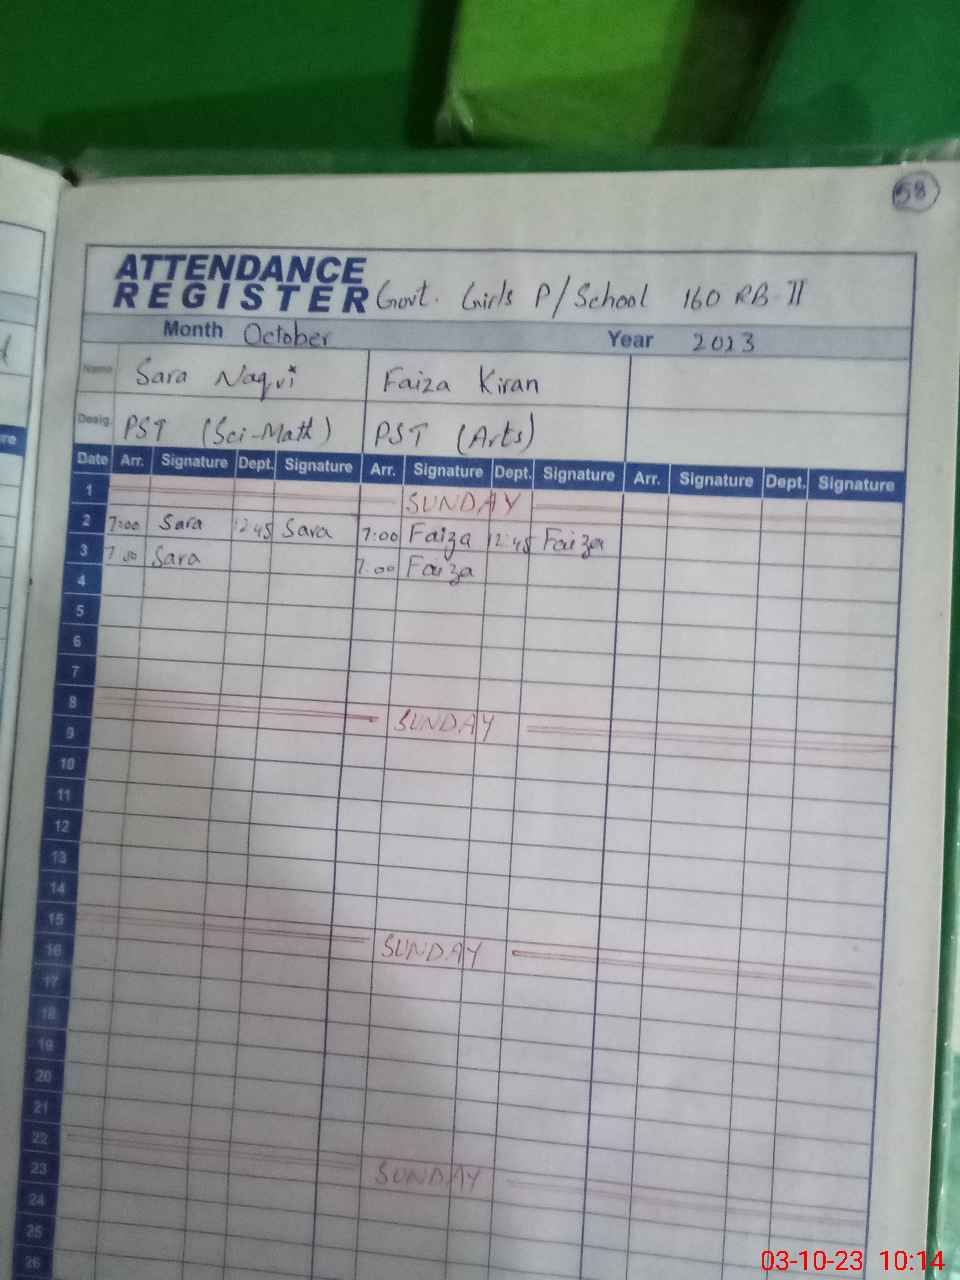 58
ATTENDANCE
REGISTER Govt. Girls P/School 160 RB II
Month October Year 2023
Name Sara Naqvi Faiza Kiran
Desig. PST (Sci-Math) PST (Arts)
Date Arr. Signature Dept. Signature Arr. Signature Dept. Signature Arr. Signature Dept. Signature
1 SUNDAY
2 7:00 Sara 12:45 Sara 7:00 Faiza 12:45 Faiza
3 7:00 Sara 7:00 Faiza
4
5
6
7
8 SUNDAY
9
10
11
12
13
14
15 SUNDAY
16
17
18
19
20
21
22 SUNDAY
23
24
25
26
03-10-23 10:14